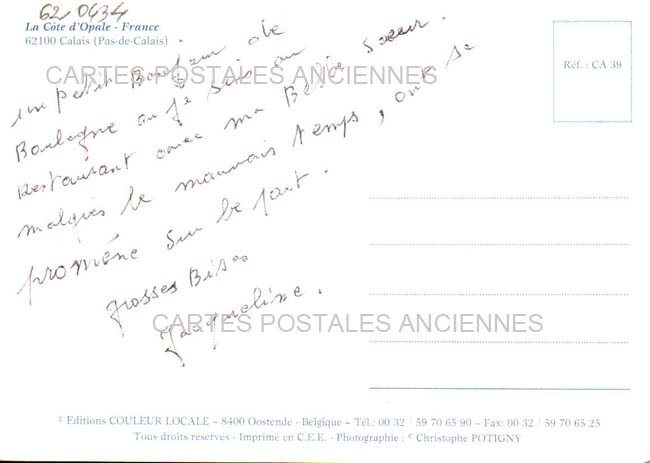 62 0434
La Côte d'Opale - France
62100 Calais (Pas-de-Calais)
Réf.: CA 39
un petit Bonjour de
Boulogne ou je suis au
Restaurant avec ma Belle soeur.
malgrés le mauvais temps, on se
promène sur le port.
grosses Bises
Jacqueline.
CARTES POSTALES ANCIENNES
CARTES POSTALES ANCIENNES
© Editions COULEUR LOCALE – 8400 Oostende - Belgique – Tél.: 00 32 / 59 70 65 90 – Fax: 00 32 / 59 70 65 25
Tous droits réservés - Imprimé en C.E.E. - Photographie : © Christophe POTIGNY